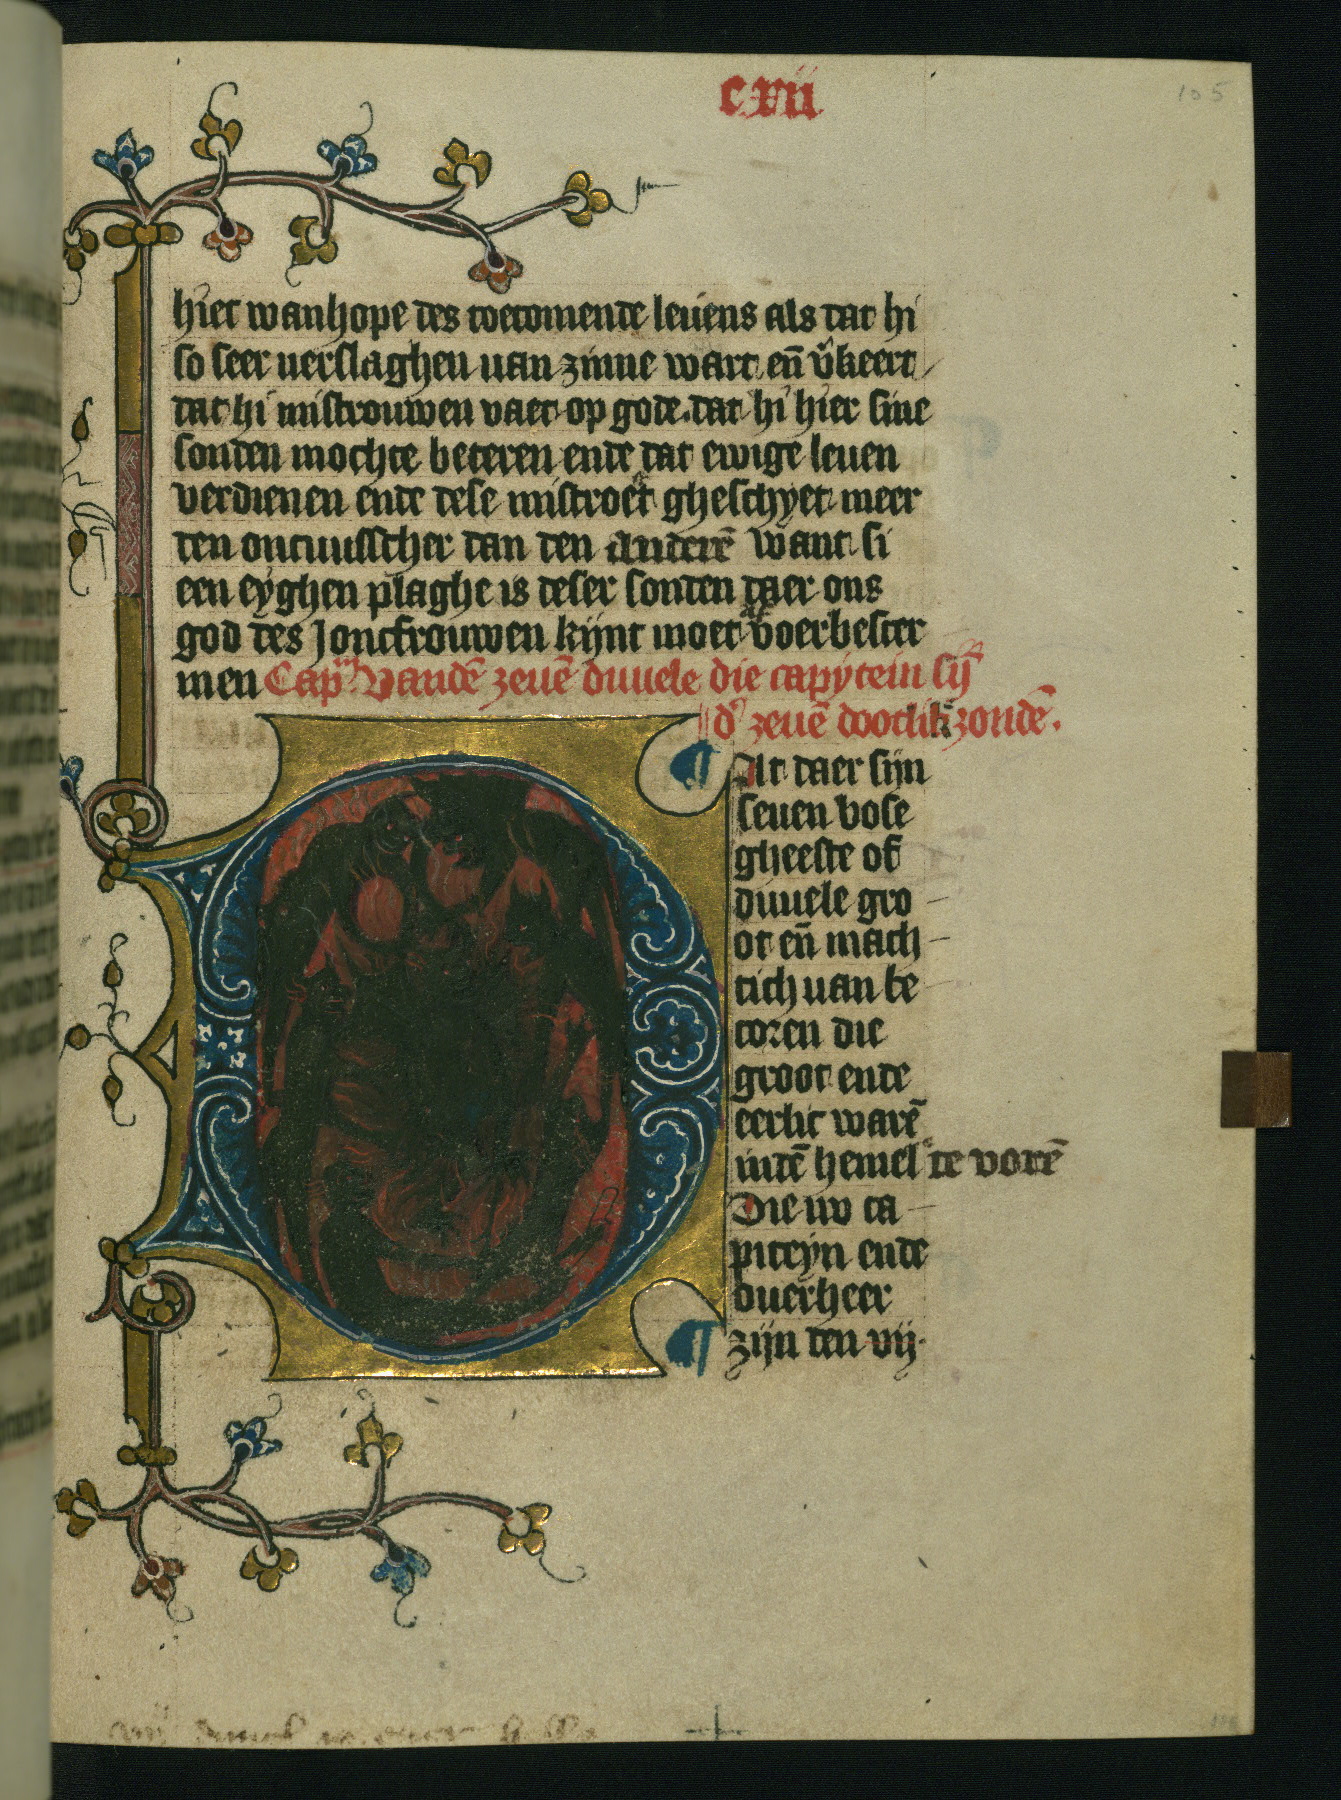 cxii
105
hier wanhope des toecomende leuens als dat hi
so seer verslaghen van zinne wart en̄ v̄keert
dat hi mistrouwen vaet op gode. dat hi hier sine
sonden mochte beteren ende dat ewige leuen
verdienen ende dese mistroest gheschyet meer
den oncuusscher dan den anderē want si
een eyghen plaghe is deser sonden daer ons
god des Joncfrouwen kijnt moet af voerbescer
men Cap̄m. Vandē zeuē duuele die capytein sij̄
d' zeuē dootlik zondē.
¶ At daer sijn
seuen bose
gheeste of
duuele gro
ot en̄ mach
tich van be
coren die
groot ende
eerlic warē
indē hemel te vorē
Die nv ca
piteyn ende
ouerheer
¶ zijn den vij.